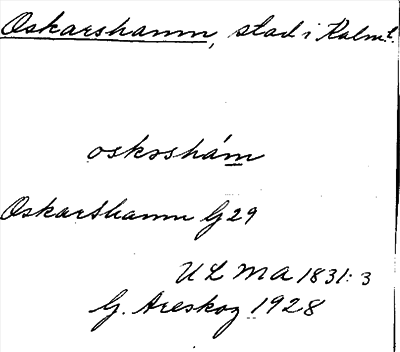 Oskarshamn, stad i Kalm. l.
oskəshám
Oskarshamn G 29
ULMA 1831:3
G. Areskog 1928